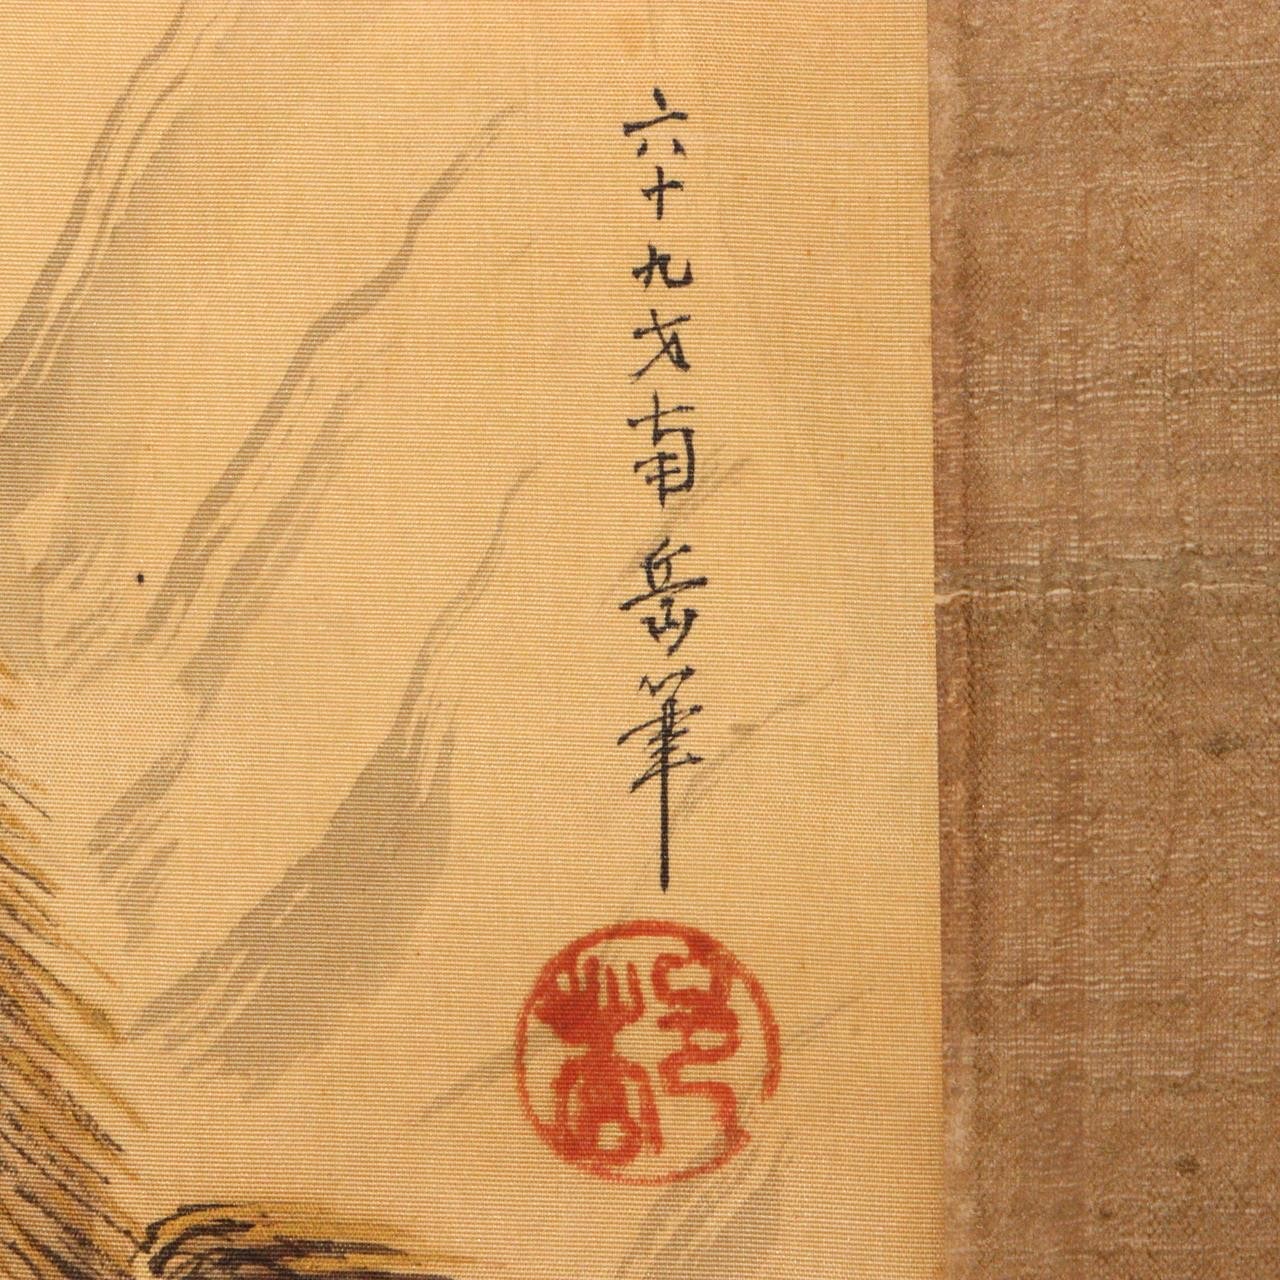 六十九才南岳筆